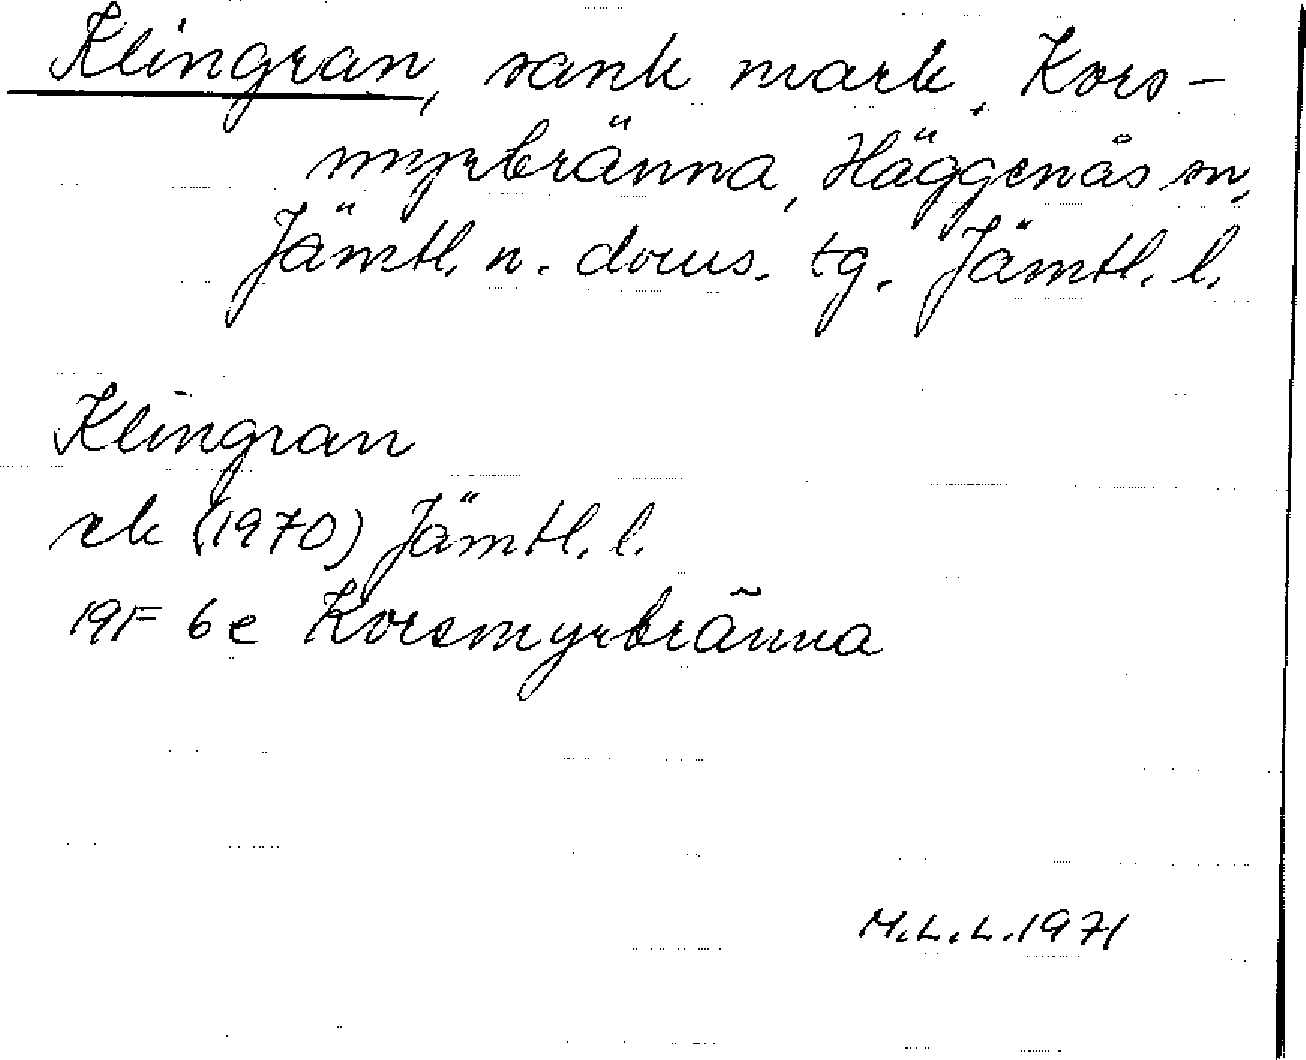 Klingran, sank mark, Kors-
myrbränna, Häggenås sn,
Jämtl. n. doms. tg. Jämtl. l.
Klingran
rek (1970) Jämtl. l.
19F 6e Korsmyrbränna
M.L.L. 1971